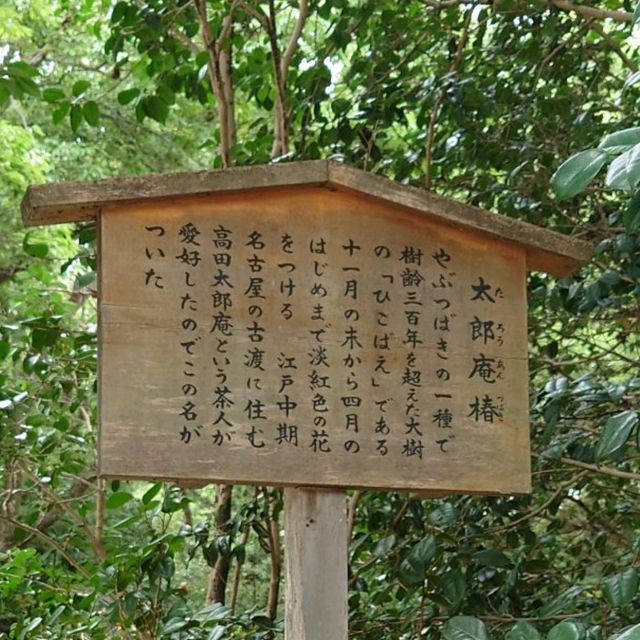 太郎庵椿
たろうあんつばき
やぶつばきの一種で
樹齢三百年を超えた大樹
の「ひこばえ」である
十一月の末から四月の
はじめまで淡紅色の花
をつける 江戸中期
名古屋の古渡に住む
高田太郎庵という茶人が
愛好したのでこの名が
ついた